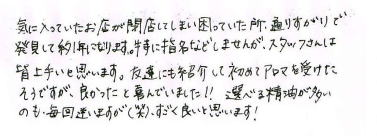 気に入っていたお店が閉店してしまい困っていた所、通りすがりで
発見して約1年になります。特に指名などしませんが、スタッフさんは
皆上手いと思います。友達にも紹介して初めてアロマを受けた
そうですが、良かったと喜んでいました!! 選べる精油が多い
のも、毎回迷いますが(笑)、すごく良いと思います!